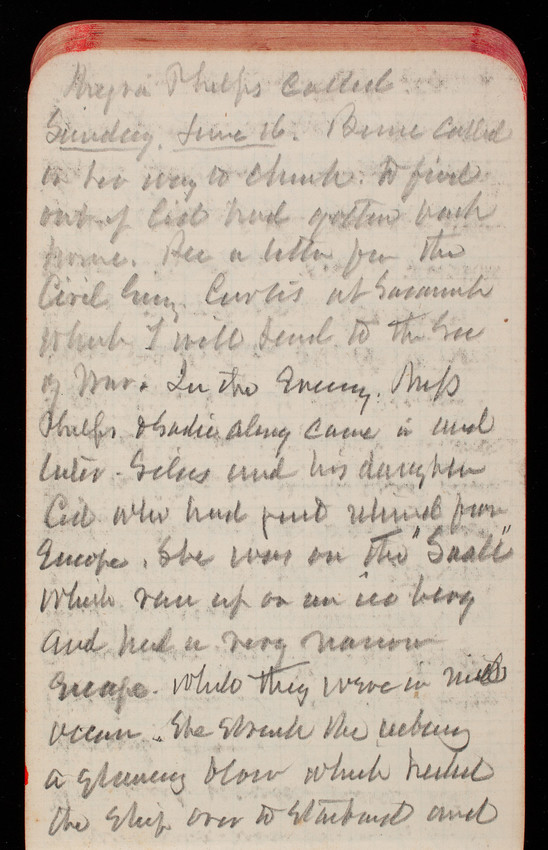 Phelps called.
Sunday, June 16. called
on her way to church to find
out if Cid had gotten back
home. Rec a letter from the
Civil Eng Curtis at Savannah
which I will send to the Sec
of War. In the Evening Miss
Phelps & Sadie along came in and
later Giles and his daughter
Cid who had just returned from
Europe. She was on the "Saale"
which ran up on an ice berg
and had a very narrow
Escape. While they were in mid
ocean. She struck the iceberg
a glancing blow which heeled
the ship over to starboard and